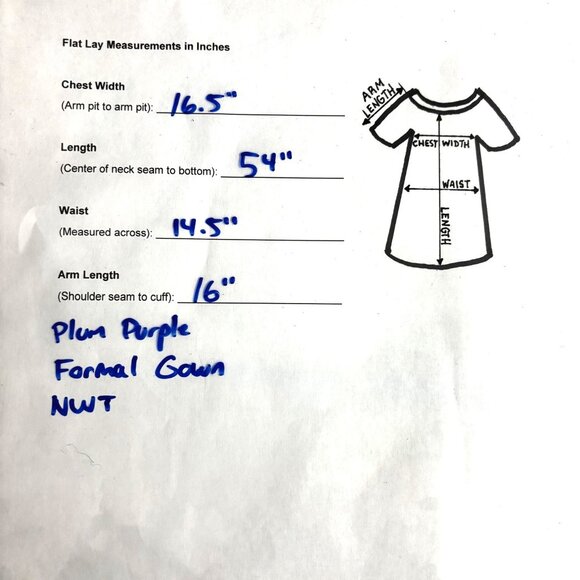 Flat Lay Measurements in Inches
Chest Width
(Arm pit to arm pit): 16.5"
Length
(Center of neck seam to bottom): 54"
Waist
(Measured across): 14.5"
Arm Length
(Shoulder seam to cuff): 16"
Plum Purple
Formal Gown
NWT
ARM
LENGTH
CHEST WIDTH
WAIST
LENGTH